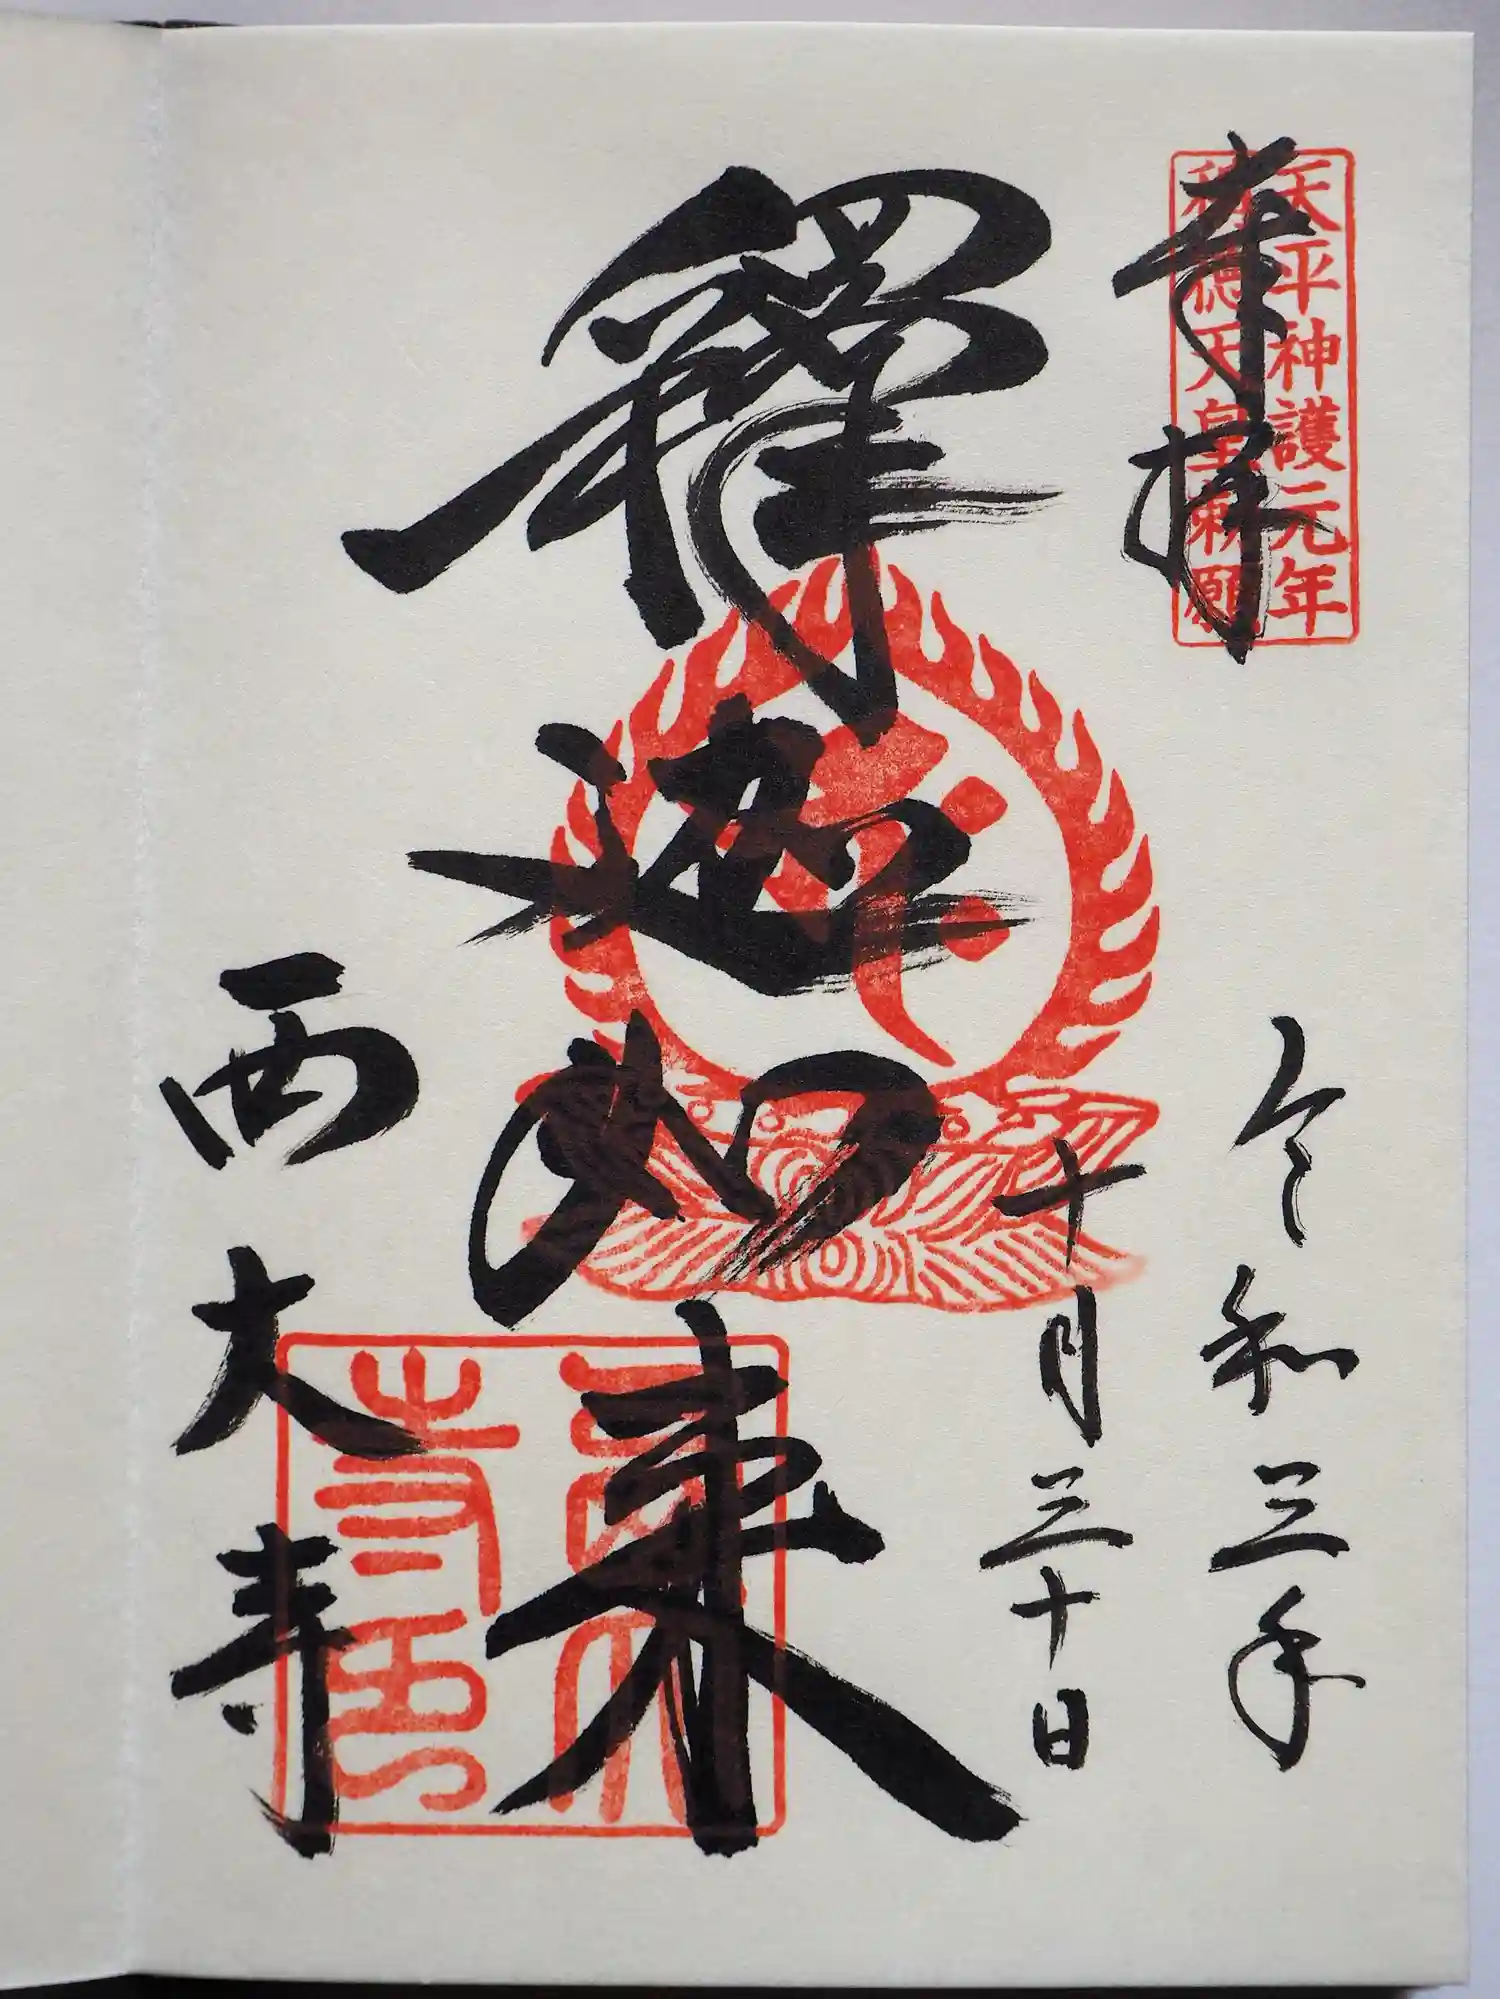 奉拝
天平神護元年
稱徳天皇勅願
令和三年
十月三十日
釋迦如来
西大寺